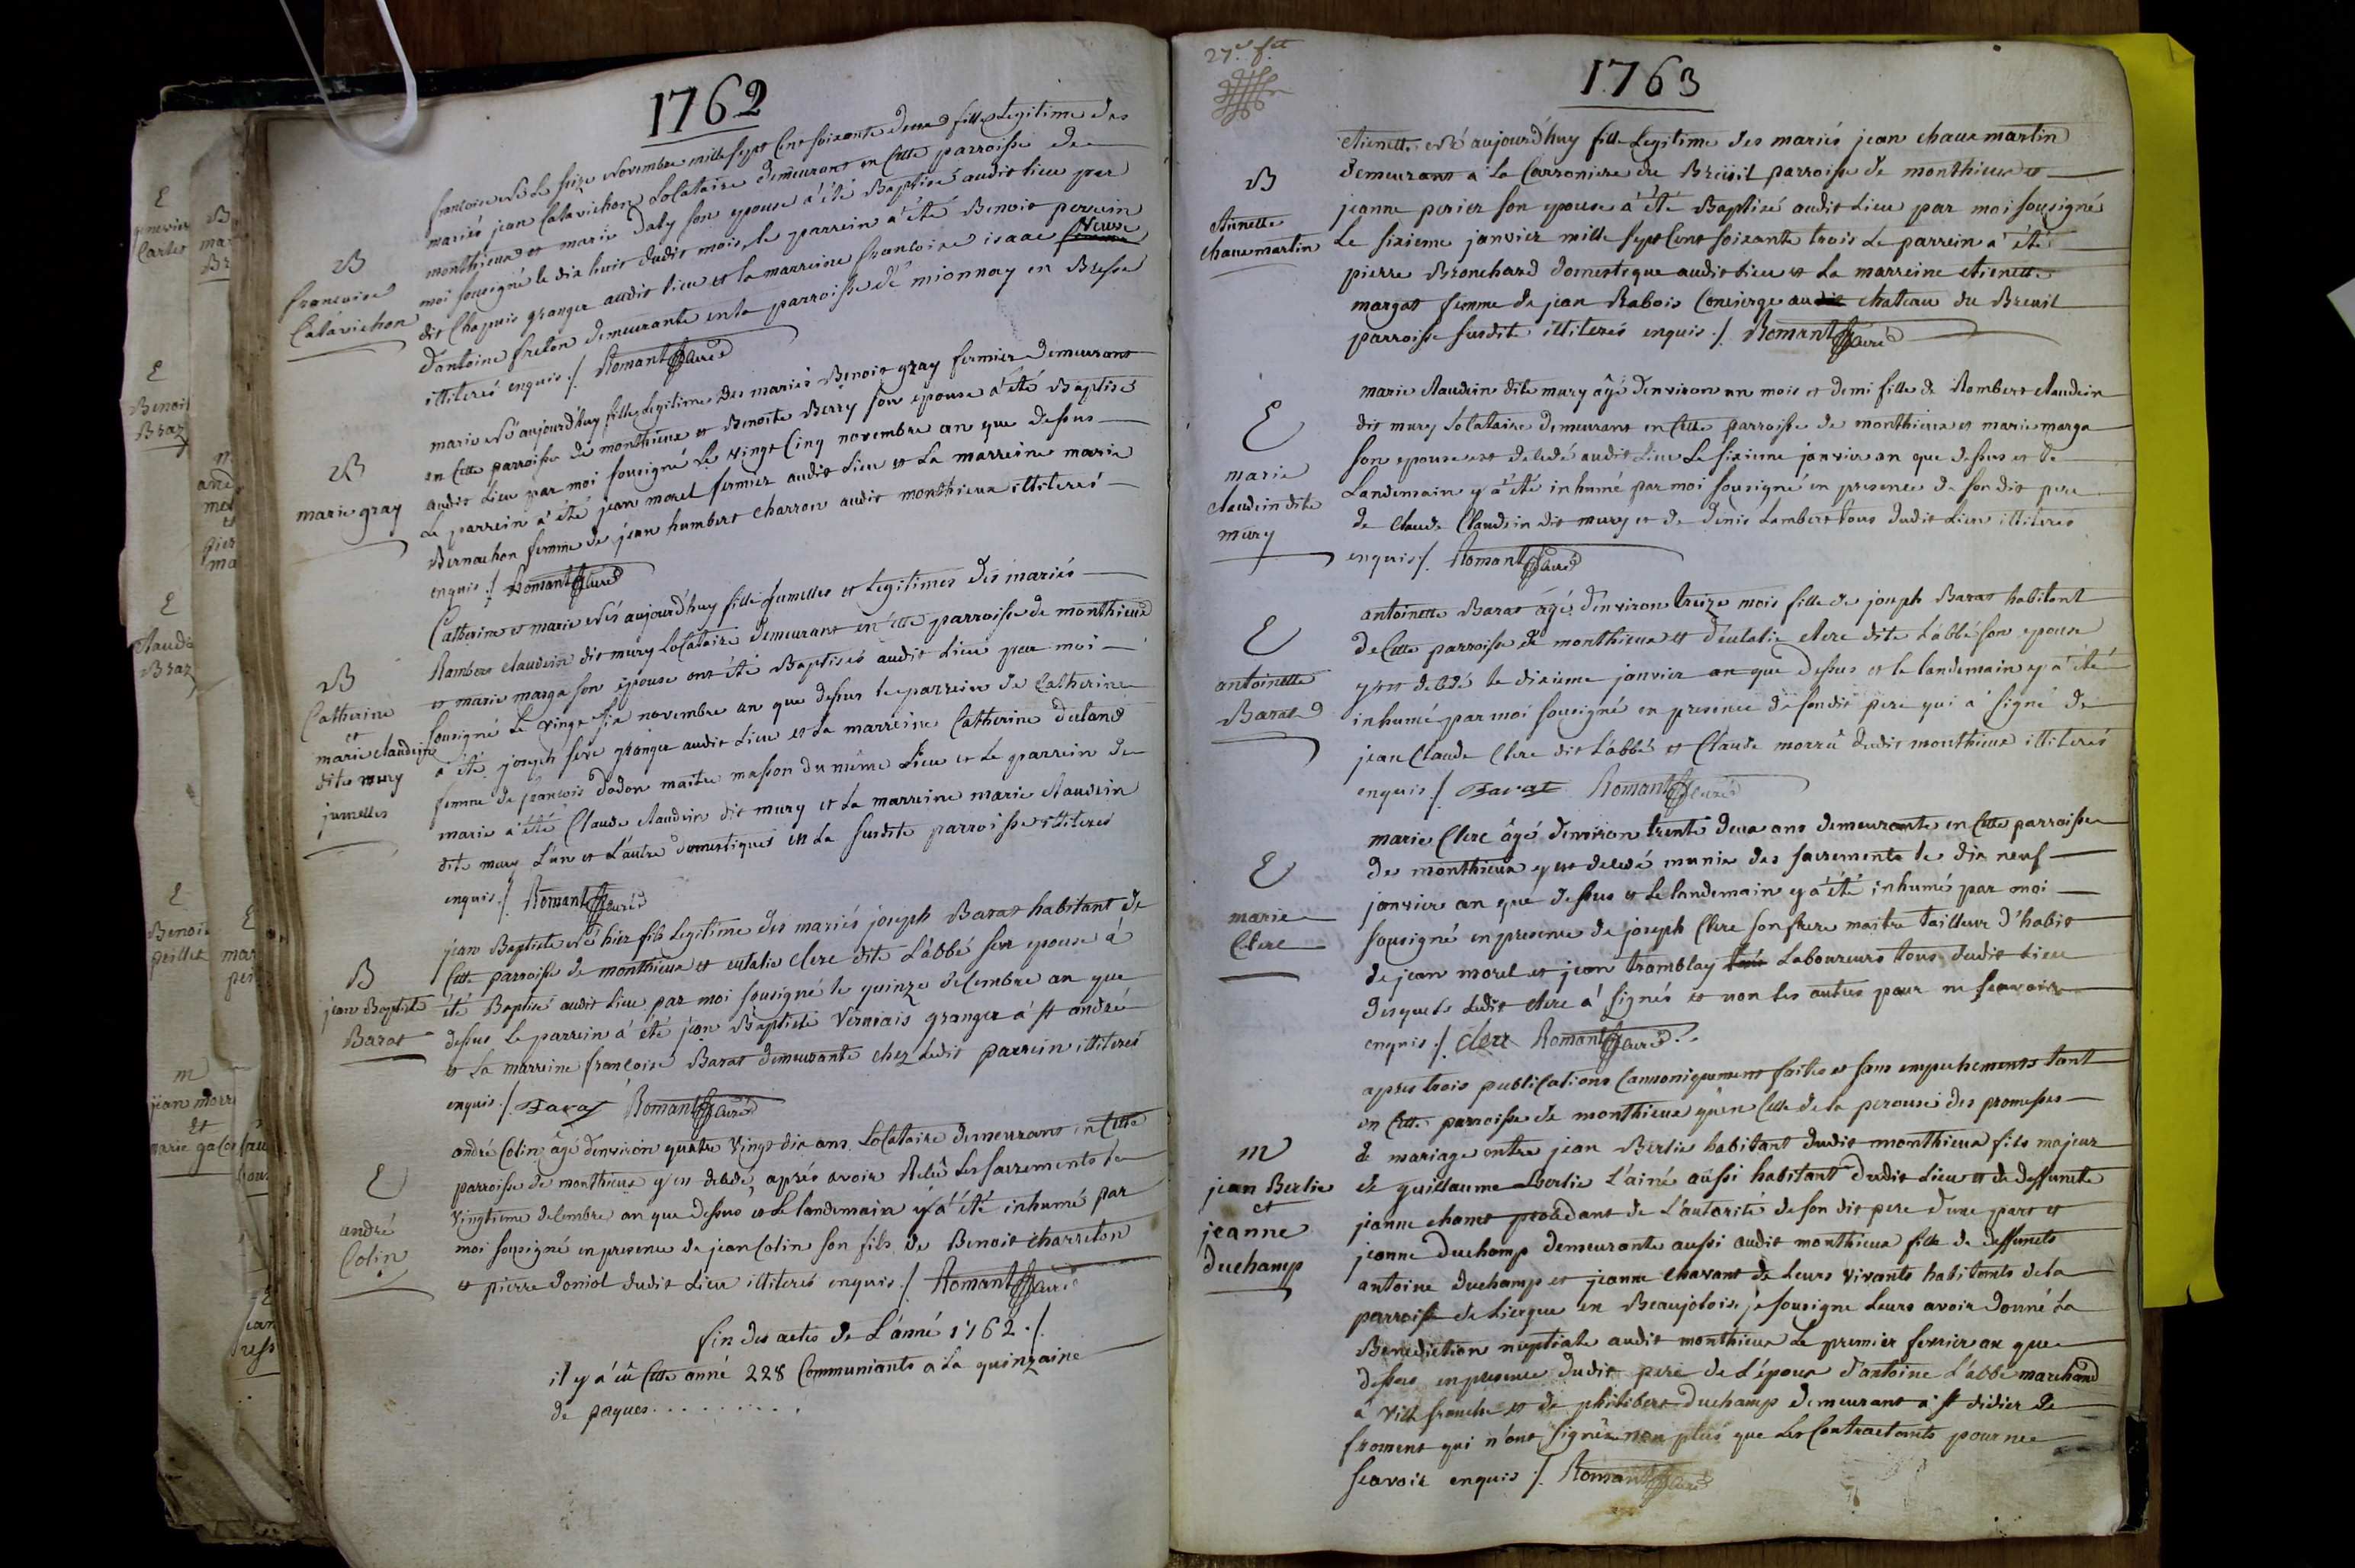 1762
B
françoise
Catavichon
francoise Né Le seize Novembre mille sept Cent soixante deux fille Legitime des
mariés jean Catavichon Locataire demeurant en Cette parroisse de
monthieux et marie Daby son epouse à été Baptisé audit lieu par
moi sousigné le dix huit dudit mois, le parrein à été Benoit perrein
dit Chapuis granger audit lieu et la marreine francoise isaac Veuve
d'antoine freton demeurante en la parroisse de mionnay en Bresse
illiterés enquis ./. Romant Curé
B
marie gray
marie Né aujourd'huy fille Legitime des mariés Benoit gray fermier demeurant
en Cette parroisse de monthieux et Benoite Berry son epouse à été Baptisé
audit Lieu par moi sousigné Le vingt Cinq novembre an que dessus
Le parrein à été jean morel fermier audit Lieu et La marreine marie
Bernachon femme de jean humbert Charron audit monthieux illiterés
enquis ./. Romant Curé
B
Catherine
et
marie claudein
dites mury
jumelles
Catherine et marie Nés aujourd'huy fille jumelles et Legitimes des mariés
Rambert claudein dit mury Locataire demeurant en Cette parroisse de monthieux
et marie marga son epouse ont été Baptisés audit Lieu par moi
sousigné Le vingt six novembre an que dessus le parrein de Catherine
a été joseph fere granger audit Lieu et la marreine Catherine ducland
femme de francois dodon maitre masson du même Lieu et Le parrein de
marie à été Claude claudein dit mury et La marreine marie claudein
dite mury L'un et L'autre domestiques en La susdite parroisse illiterés
enquis ./. Romant Curé
B
jean Baptiste
Barat
jean Baptiste Né hier fils Legitime des mariés joseph Barat habitant de
Cette parroisse de monthieux et eulalie clerc dite L'abbé son epouse à
été Baptisé audit Lieu par moi sousigné le quinze decembre an que
dessus Le parrein à été jean Baptiste Verniais granger à st andré
et La marreine francoise Barat demeurante chez Ledit parrein illiterés
enquis ./. Barat Romant Curé
E
andré
Colin
andré Colin âgé d'environ quatre vingt dix ans Locataire demeurant en Cette
parroisse de monthieux y est decedé, aprés avoir Recû Les sacrements le
vingtieme decembre an que dessus et Le landemain y à été inhumé par
moi sousigné en presence de jean Colin son fils de Benoit charreton
et pierre doniol dudit Lieu illiterés enquis ./. Romant Curé
fin des actes de L'anné 1762 ./.
il y à eû Cette anné 228 Communiants a La quinzaine
de paques . . . . . . . . .
1763
B
etienette
chaux martin
etienette Né aujourd'huy fille Legitime des mariés jean chaux martin
demeurant a La Carroniere du Breüil parroisse de monthieux et
jeanne perier son epouse à été Baptisé audit Lieu par moi sousigné
Le sixieme janvier mille sept Cent soixante trois Le parrein à été
pierre Bronchard domestique audit Lieu et La marreine etienette
margat femme de jean Rabois Concierge au chateau du Breuil
parroisse susdite illiterés enquis ./. Romant Curé
E
marie
claudein dite
mury
marie claudein dite mury âgé d'environ un mois et demi fille de Rambert claudein
dit mury Locataire demeurant en Cette parroisse de monthieux et marie marga
son epouse est decedé audit Lieu Le sixieme janvier an que dessus et Le
Landemain y à été inhumé par moi sousigné en presence de son dit pere
de Claude Claudein dit mury et de denis Lambert tous dudit Lieu illiterés
enquis ./. Romant Curé
E
antoinette
Barat
antoinette Barat âgé d'environ treize mois fille de joseph Barat habitant
de Cette parroisse de monthieux et d'eulalie clerc dite L'abbé son epouse
y est decedé le dixieme janvier an que dessus et le landemain y à été
inhumé par moi sousigné en presence de son dit pere qui à signé de
jean Claude Clerc dit L'abbé et Claude morrû dudit monthieux illiterés
enquis ./. Barat Romant Curé
E
marie
Clerc
marie Clerc âgé d'environ trente deux ans demeurante en Cette parroisse
de monthieux y est decedé munie des sacrements le dix neuf
janvier an que dessus et Le landemain y à été inhumé par moi
sousigné en presence de joseph Clerc son frere maitre tailleur d'habit
de jean morel et jean tramblay Laboureurs tous dudit Lieu
desquels Ledit clerc à signés et non les autres pour ne scavoir
enquis ./. Clerc Romant Curé
m
jean Berlie
et
jeanne
duchamp
apres trois publications Cannoniquement faites et sans empechements tant
en Cette parroisse de monthieux qu'en Celle de la perouse des promesses
de mariage entre jean Berlie habitant dudit monthieux fils majeur
de guillaume Berlie L'ainé aussi habitant dudit Lieu et de deffuncte
jeanne chanet procedant de L'autorité de son dit pere d'une part et
jeanne duchamp demeurante aussi audit monthieux fille de deffuncts
antoine duchamp et jeanne chavant de Leurs vivants habitants de la
parroisse de Liergue en Beaujolois, je sousigne Leurs avoir donné La
Benediction nuptiale audit monthieux Le premier fevrier an que
dessus en presence dudit pere de L'époux d'antoine L'abbé marchand
à ville franche et de philibert duchamp demeurant à st didier de
froment qui n'ont signés non plus que Les Contractants pour ne
scavoir enquis ./. Romant Curé